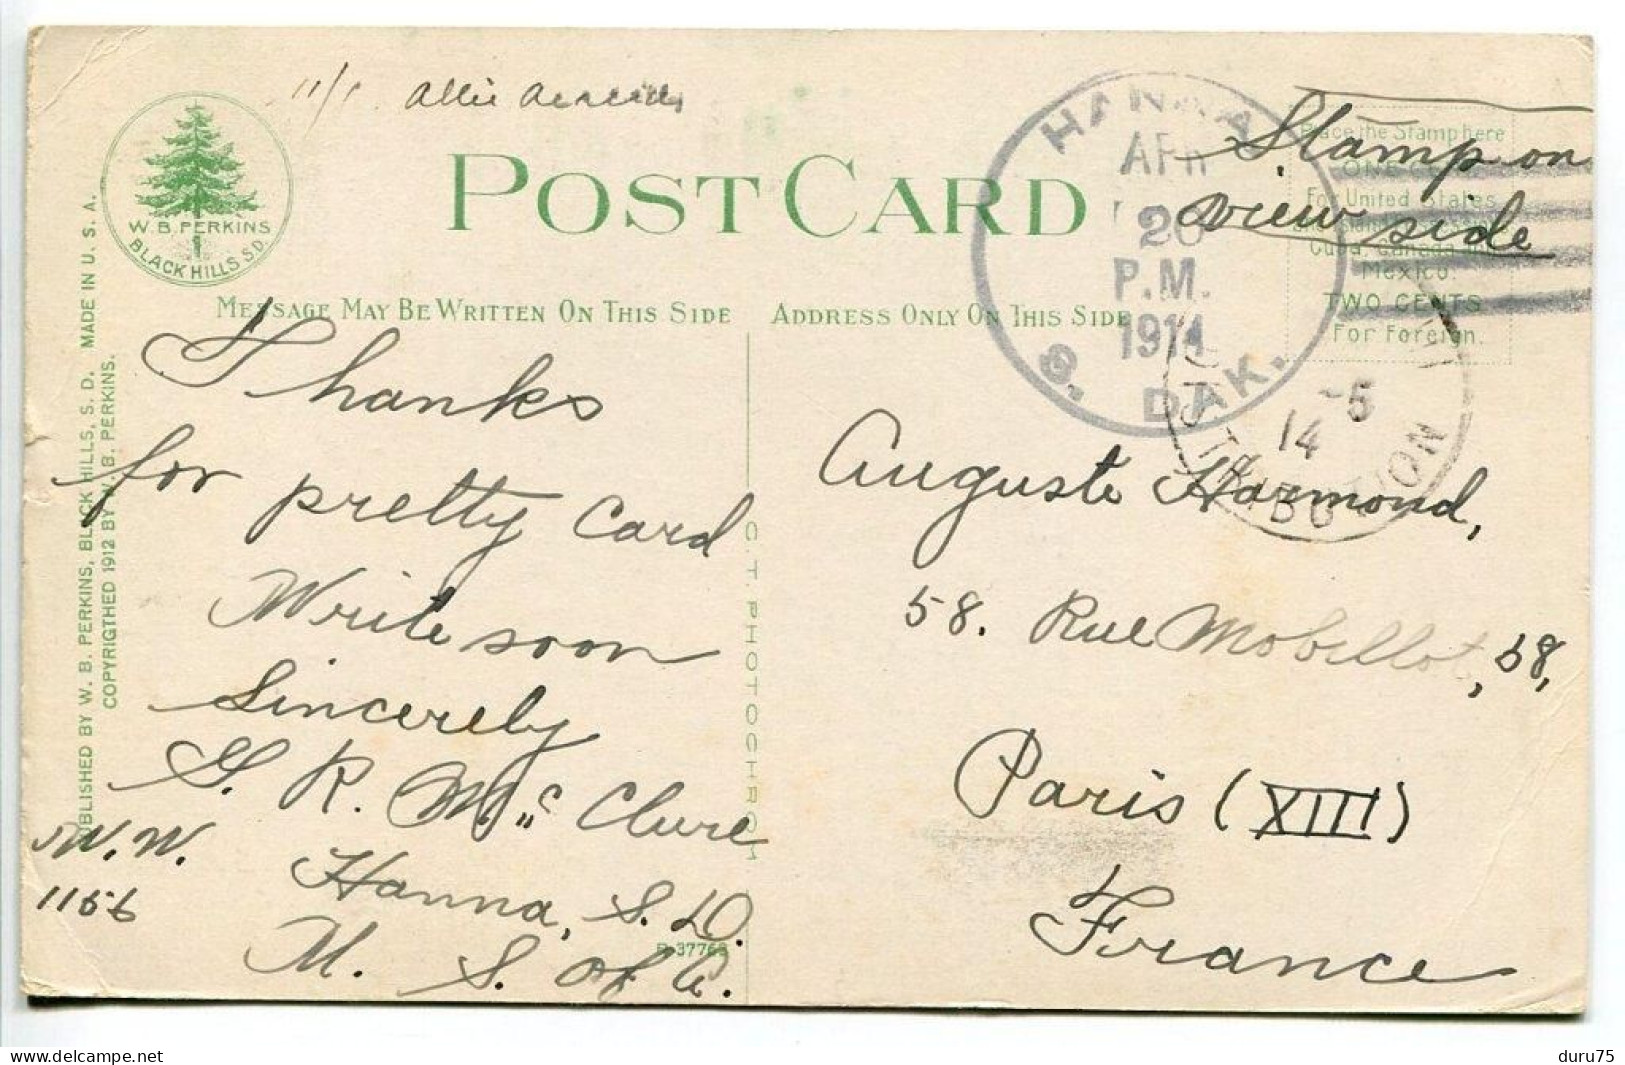 11/1. Allie
W. B. PERKINS
BLACK HILLS S.D.
POST CARD
HANNA
APR
20
P.M.
1914
S. DAK.
Stamp on
view side
Place the Stamp here
ONE
For United States
Cuba, Canada
Mexico.
TWO CENTS
For Foreign.
MESSAGE MAY BE WRITTEN ON THIS SIDE
ADDRESS ONLY ON THIS SIDE
-5
14
DISTRIBUTION
PUBLISHED BY W. B. PERKINS, BLACK HILLS, S. D. MADE IN U. S. A.
COPYRIGTHED 1912 BY W. B. PERKINS.
Thanks
for pretty card
Write soon
Sincerely
G. R. Mc Clure
W.W.
1156
Hanna, S. D.
U. S. of A.
C. T. PHOTOCHROM
Auguste Harmond,
58. Rue Mobillot, 58,
Paris (XIII)
France
Posted by
duru75